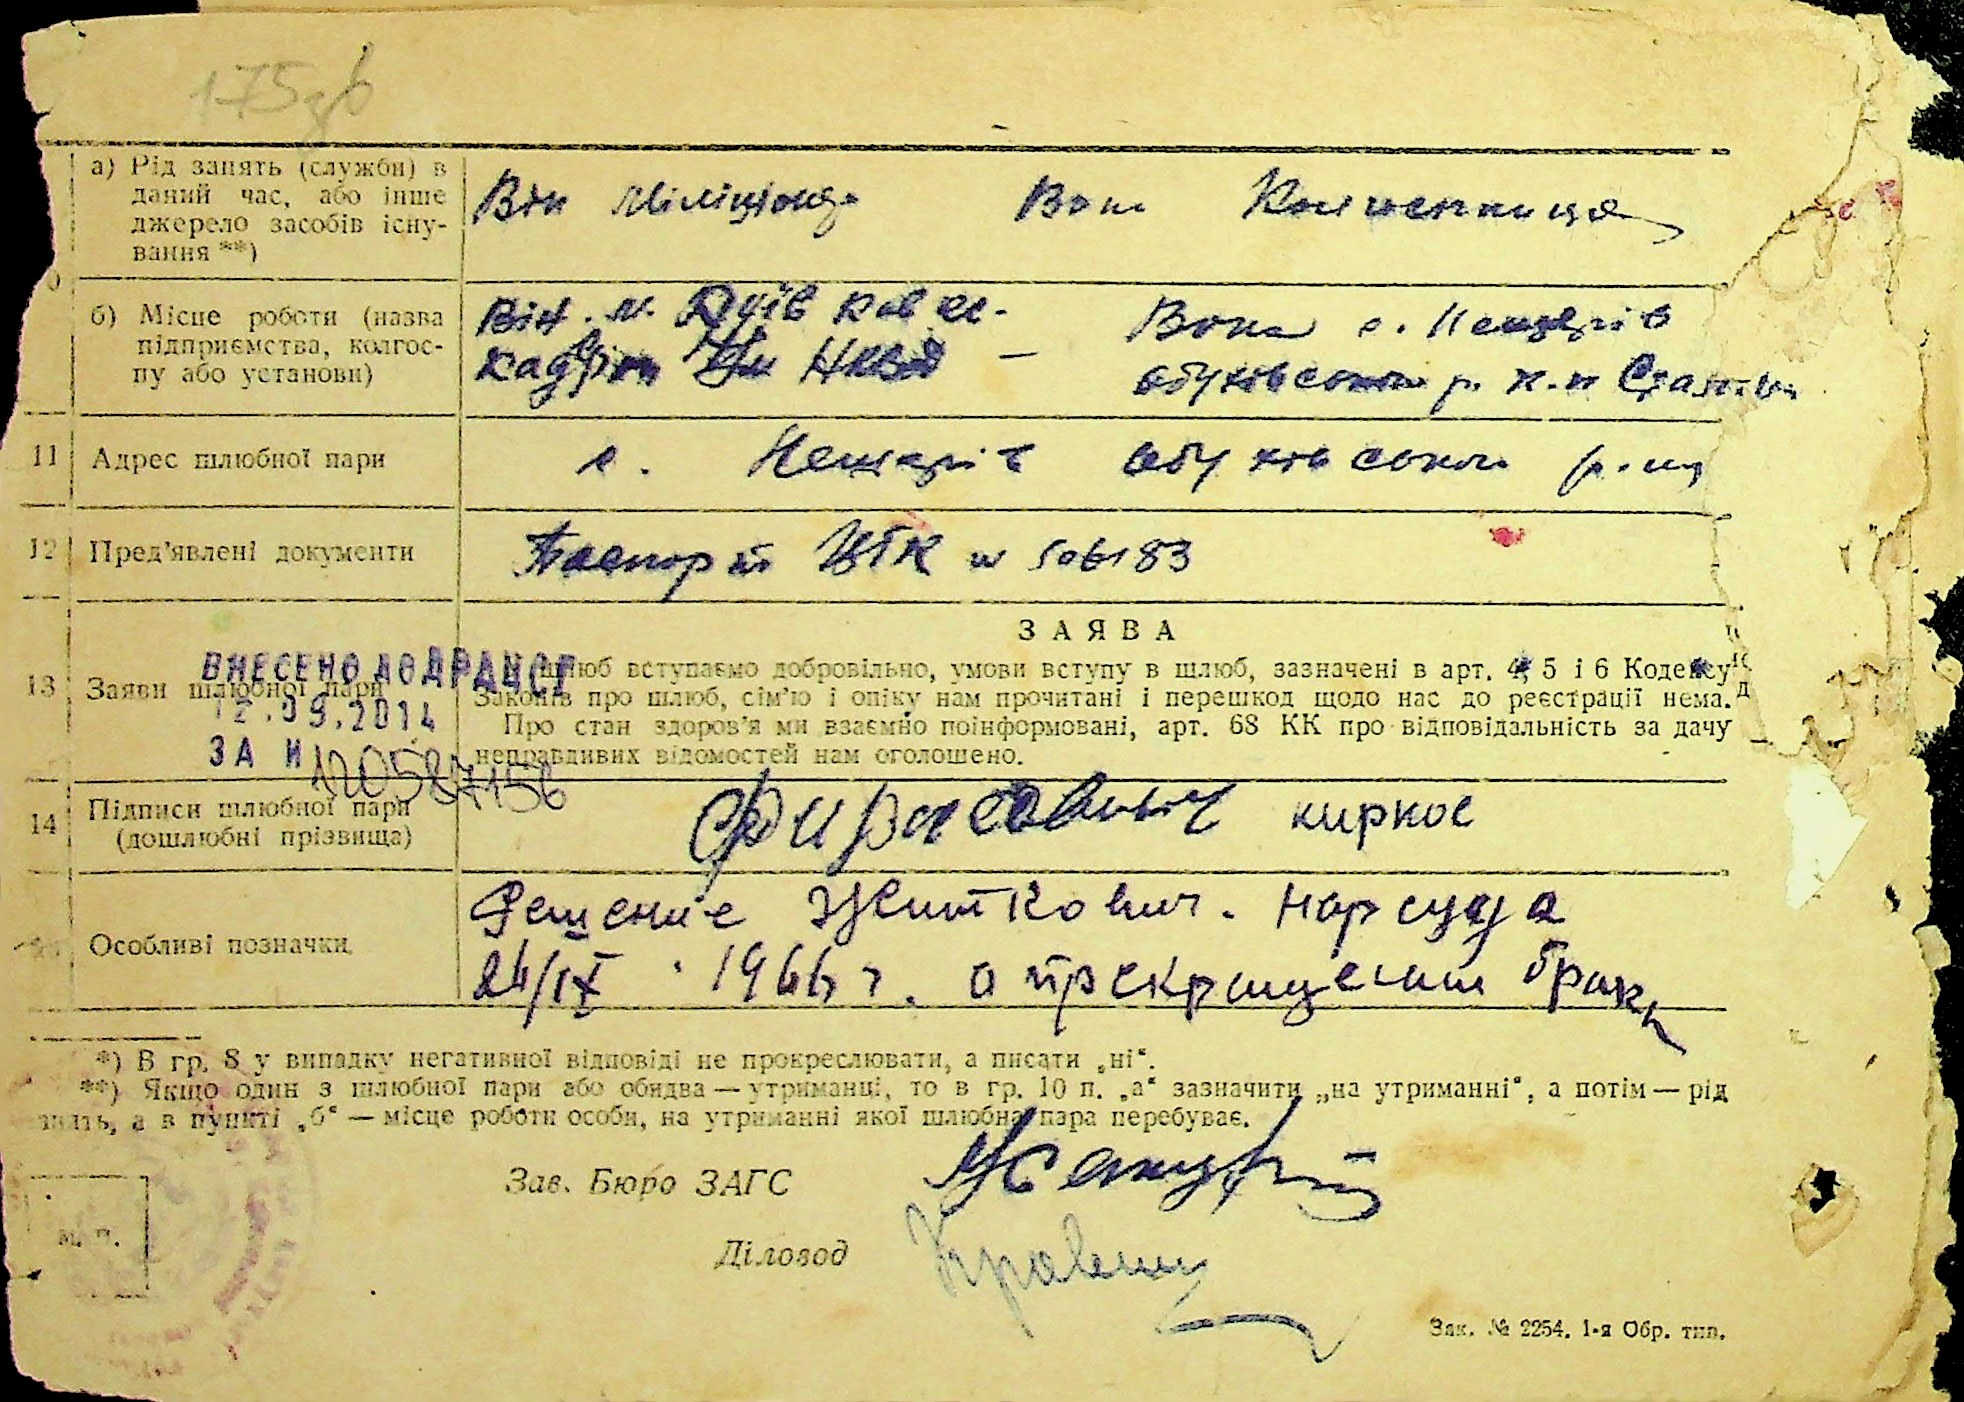 175зв
а) Рід занять (служби) в
даний час, або інше
джерело засобів існу-
вання **)
Він Міліціонер Вона Колгоспниця
б) Місце роботи (назва
підприємства, колгос-
пу або установи)
Він м. Київ
НКВД —
Вона с. Нещерів
Обуховського р. к-п Сталіна
11 Адрес шлюбної пари
с. Нещерів Обуховського р-ну
12 Пред’явлені документи
Паспорт № 506183
ЗАЯВА
13 Заяви шлюбної пари
шлюб вступаємо добровільно, умови вступу в шлюб, зазначені в арт. 4, 5 і 6 Кодексу
Законів про шлюб, сім’ю і опіку нам прочитані і перешкод щодо нас до реєстрації нема.
Про стан здоров’я ми взаємно поінформовані, арт. 68 КК про відповідальність за дачу
неправдивих відомостей нам оголошено.
ВНЕСЕНО ДО ДРАЦСГ
12.09.2014
ЗА № 120587156
14 Підписи шлюбної пари
(дошлюбні прізвища)
Фирасович киркос
Особливі позначки
Решение Житкович. Нарсуда
24/IX 1966 г. о прекращении брака
*) В гр. 8 у випадку негативної відповіді не прокреслювати, а писати „ні“.
**) Якщо один з шлюбної пари або обидва — утриманці, то в гр. 10 п. „а“ зазначити „на утриманні“, а потім — рід
занять, а в пункті „б“ — місце роботи особи, на утриманні якої шлюбна пара перебуває.
Зав. Бюро ЗАГС
Діловод
м. п.
Зак. № 2254. 1-я Обр. тип.